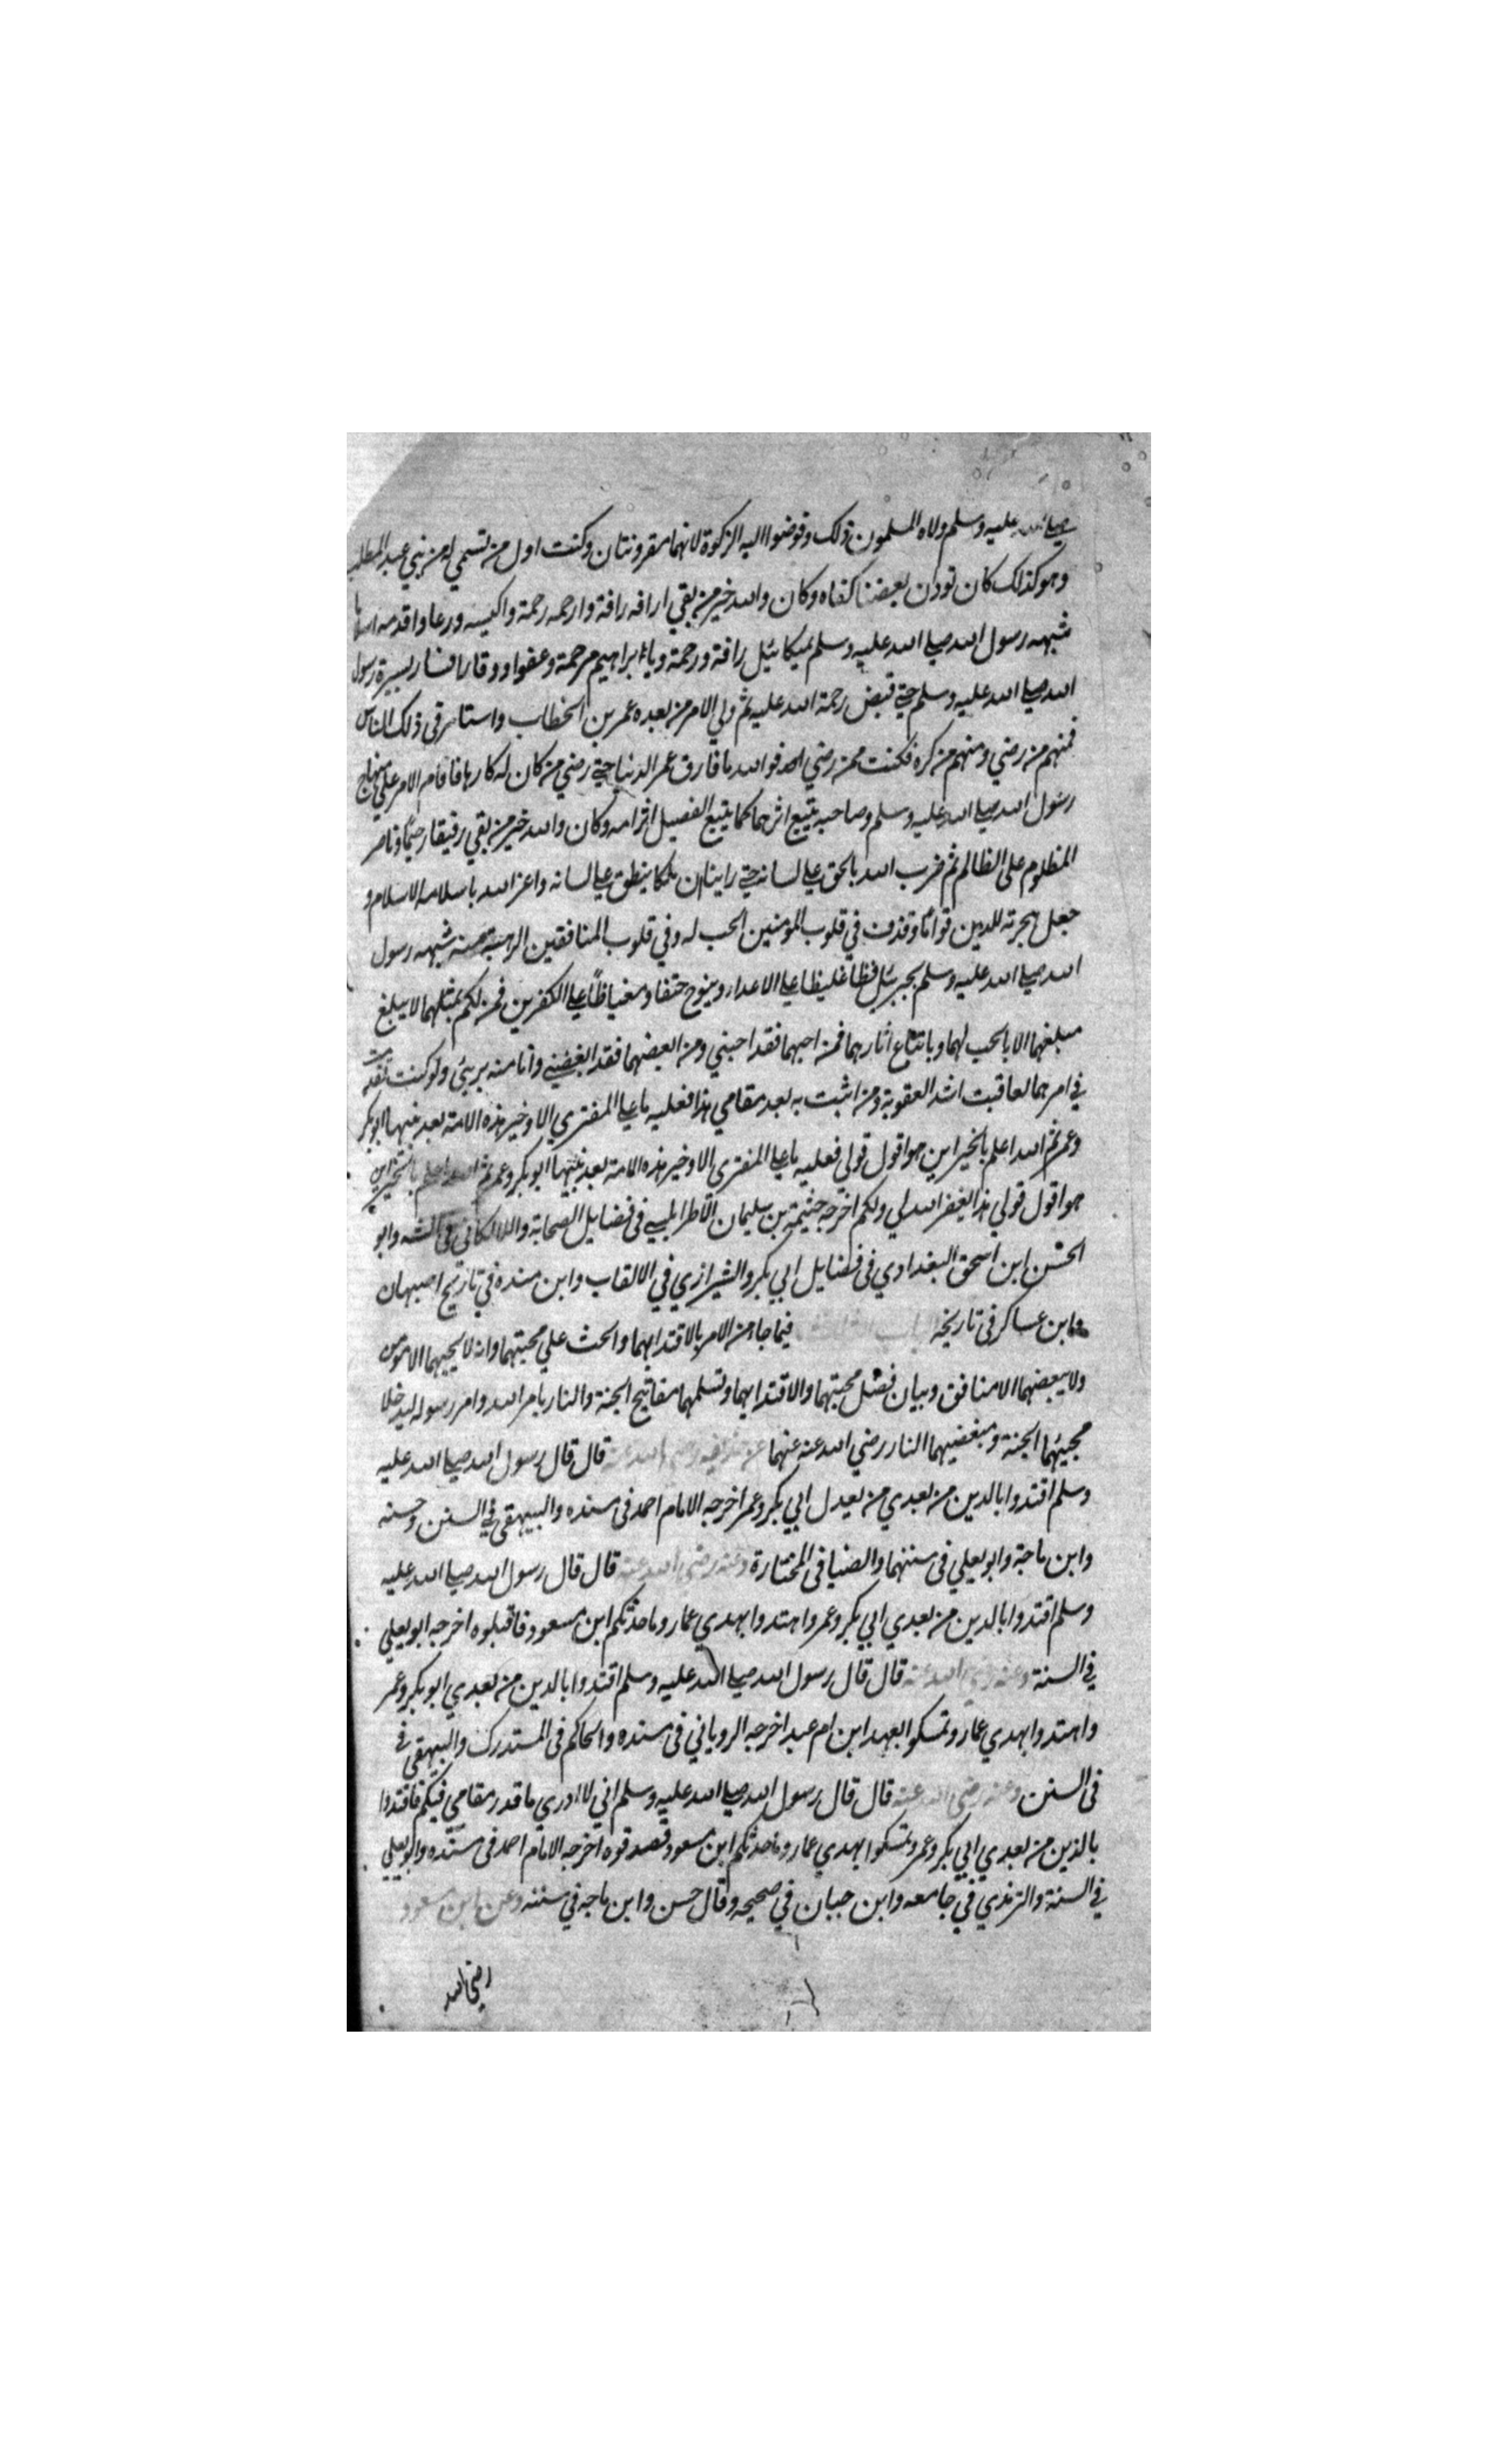 صلى الله عليه وسلم ولاه المسلمون ذلك وفوضوا اليه الزكوة لانهما مقرونتان وكنت اول من تسمى له من بني عبد المطلب
وهو كذلك كان تودن بعضنا كفاه وكان والله خير من بقي ارافه رافة وارحمه رحمة واكيسه ورعا واقدمه اسلاما
شبهه رسول الله صلى الله عليه وسلم بميكائيل رافة ورحمة وبابراهيم مرحمة وعفوا ووقارا فسار بسيرة رسول
الله صلى الله عليه وسلم حتى قبض رحمة الله عليه ثم ولي الامر من بعده عمر بن الخطاب واستامر في ذلك الناس
فمنهم من رضي ومنهم من كره فكنت ممن رضي فوالله ما فارق عمر الدنيا حتى رضي من كان له كارها فاقام الامر على منهاج
رسول الله صلى الله عليه وسلم وصاحبه يتبع اثرهما كما يتبع الفصيل اثر امه وكان والله خير من بقي رفيقا رحيما وناصر
المظلوم على الظالم ثم ضرب الله بالحق على لسانه حتى راينا ان ملكا ينطق على لسانه واعز الله باسلامه الاسلام و
جعل هجرته للدين قواما وقذف في قلوب المومنين الحب له وفي قلوب المنافقين الرهبة منه شبهه رسول
الله صلى الله عليه وسلم بجبرئيل فظا غليظا على الاعداء وبنوح حنقا ومغتاظا على الكفرين فمن لكم بمثلهما لا يبلغ
مبلغهما الا بالحب لهما وباتباع اثارهما فمن احبهما فقد احبني ومن ابغضهما فقد ابغضني وانا منه بريئ ولو كنت تقدمت
في امرهما لعاقبت اشد العقوبة ومن اثبت به بعد مقامي هذا فعليه ما على المفتري الا وخير هذه الامة بعد نبيها ابو بكر
وعمر ثم الله اعلم بالخير اين هو اقول قولي فعليه ما على المفتري الا وخير هذه الامة بعد نبيها ابو بكر وعمر ثم الله اعلم بالخير اين
هو اقول قولي هذا يغفر الله لي ولكم اخرجه خثيمة بن سليمان الاطرابلسي في فضايل الصحابة واللالكائي في السنة وابو
الحسن ابن اسحق البغدادي في فضايل ابي بكر والشيرازي في الالقاب وابن منده في تاريخ اصبهان
وابن عساكر في تاريخه الباب فيما جاء من الامر بالاقتدا بهما والحث على محبتهما وانه لا يحبهما الا مومن
ولا يبغضهما الا منافق وبيان فضل محبتهما والاقتدا بهما وتسلمهما مفاتيح الجنة والنار بامر الله وامر رسوله ليدخلا
محبيهما الجنة ومبغضيهما النار رضي الله عنه عنهما عن حذيفة رضي الله عنه قال قال رسول الله صلى الله عليه
وسلم اقتدوا بالدين من بعدي من يعدل ابي بكر وعمر اخرجه الامام احمد في مسنده والبيهقي في السنن وحسنه
وابن ماجة وابو يعلي في سننهما والضيا في المختارة وعنه رضي الله عنه قال قال رسول الله صلى الله عليه
وسلم اقتدوا بالدين من بعدي ابي بكر وعمر واهتدوا بهدي عمار وما حدثكم ابن مسعود فاقبلوه اخرجه ابو يعلي
في السنة وعنه رضي الله عنه قال قال رسول الله صلى الله عليه وسلم اقتدوا بالدين من بعدي ابو بكر وعمر
واهتدوا بهدي عمار وتمسكوا بعهد ابن ام عبد اخرجه الروياني في مسنده والحاكم في المستدرك والبيهقي في
في السنن وعنه رضي الله عنه قال قال رسول الله صلى الله عليه وسلم اني لا ادري ما قدر مقامي فيكم فاقتدوا
بالذين من بعدي ابي بكر وعمر وتمسكوا بهدي عمار وما حدثكم ابن مسعود فصدقوه اخرجه الامام احمد في مسنده وابو يعلي
في السنة والترمذي في جامعه وابن حبان في صحيحه وقال حسن وابن ماجه في سننه وعن ابن مسعود
رضي الله